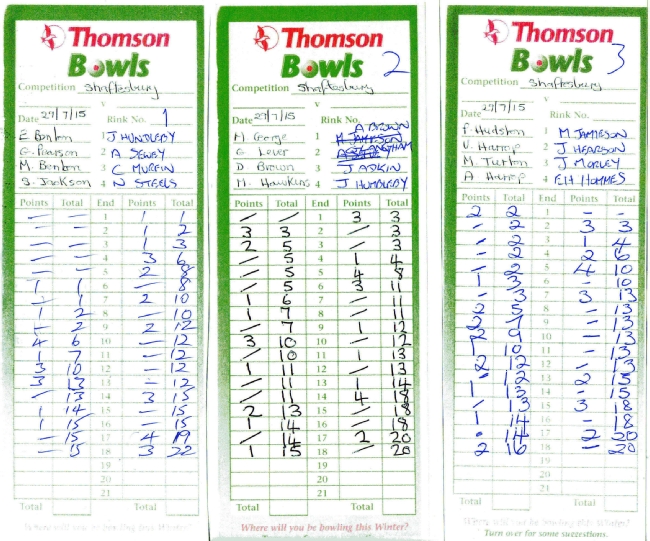 Thomson
Bowls
Competition Shaftesbury
v
Date 29/7/15 Rink No. 1
E Benton 1 J HUNDLEBY
G. Pearson 2 A SEWEY
M. Benton 3 C MUFFIN
S. Jackson 4 N STEELS
Points Total End Points Total
— — 1 1 1
— — 2 1 2
— — 3 1 3
— — 4 3 6
— — 5 2 8
1 1 6 — 8
— 1 7 2 10
1 2 8 — 10
— 2 9 2 12
4 6 10 — 12
1 7 11 — 12
3 10 12 — 12
3 13 13 — 12
— 13 14 3 15
1 14 15 — 15
1 15 16 — 15
— 15 17 4 19
— 15 18 3 22
19
20
21
Total Total
Where will you be bowling this Winter?
Thomson
Bowls 2
Competition Shaftesbury
v
Date 29/7/15 Rink No.
A BROWN
M George 1
G Lever 2
D Brown 3 J ASKIN
M. Hawkins 4 J HUMBLEDY
Points Total End Points Total
— — 1 3 3
3 3 2 — 3
2 5 3 — 3
— 5 4 1 4
— 5 5 4 8
— 5 6 3 11
1 6 7 — 11
1 7 8 — 11
— 7 9 1 12
3 10 10 — 12
— 10 11 1 13
1 11 12 — 13
— 11 13 1 14
— 11 14 4 18
2 13 15 — 18
1 14 16 — 18
— 14 17 2 20
1 15 18 — 20
19
20
21
Total Total
Where will you be bowling this Winter?
Thomson
Bowls 3
Competition Shaftesbury
v
Date 29/7/15 Rink No.
F. Hudston 1 M JAMIESON
V. Harrop 2 J HEARSON
M. Turton 3 J MORLEY
A Harrop 4 EH HOMMES
Points Total End Points Total
2 2 1 — —
— 2 2 3 3
— 2 3 1 4
— 2 4 2 6
— 2 5 4 10
1 3 6 — 10
— 3 7 3 13
2 5 8 — 13
2 7 9 — 13
2 9 10 — 13
1 10 11 — 13
2 12 12 — 13
— 12 13 2 15
1 13 14 — 15
— 13 15 3 18
1 14 16 — 18
— 14 17 2 20
2 16 18 — 20
19
20
21
Total Total
Where will you be bowling this Winter?
Turn over for some suggestions.